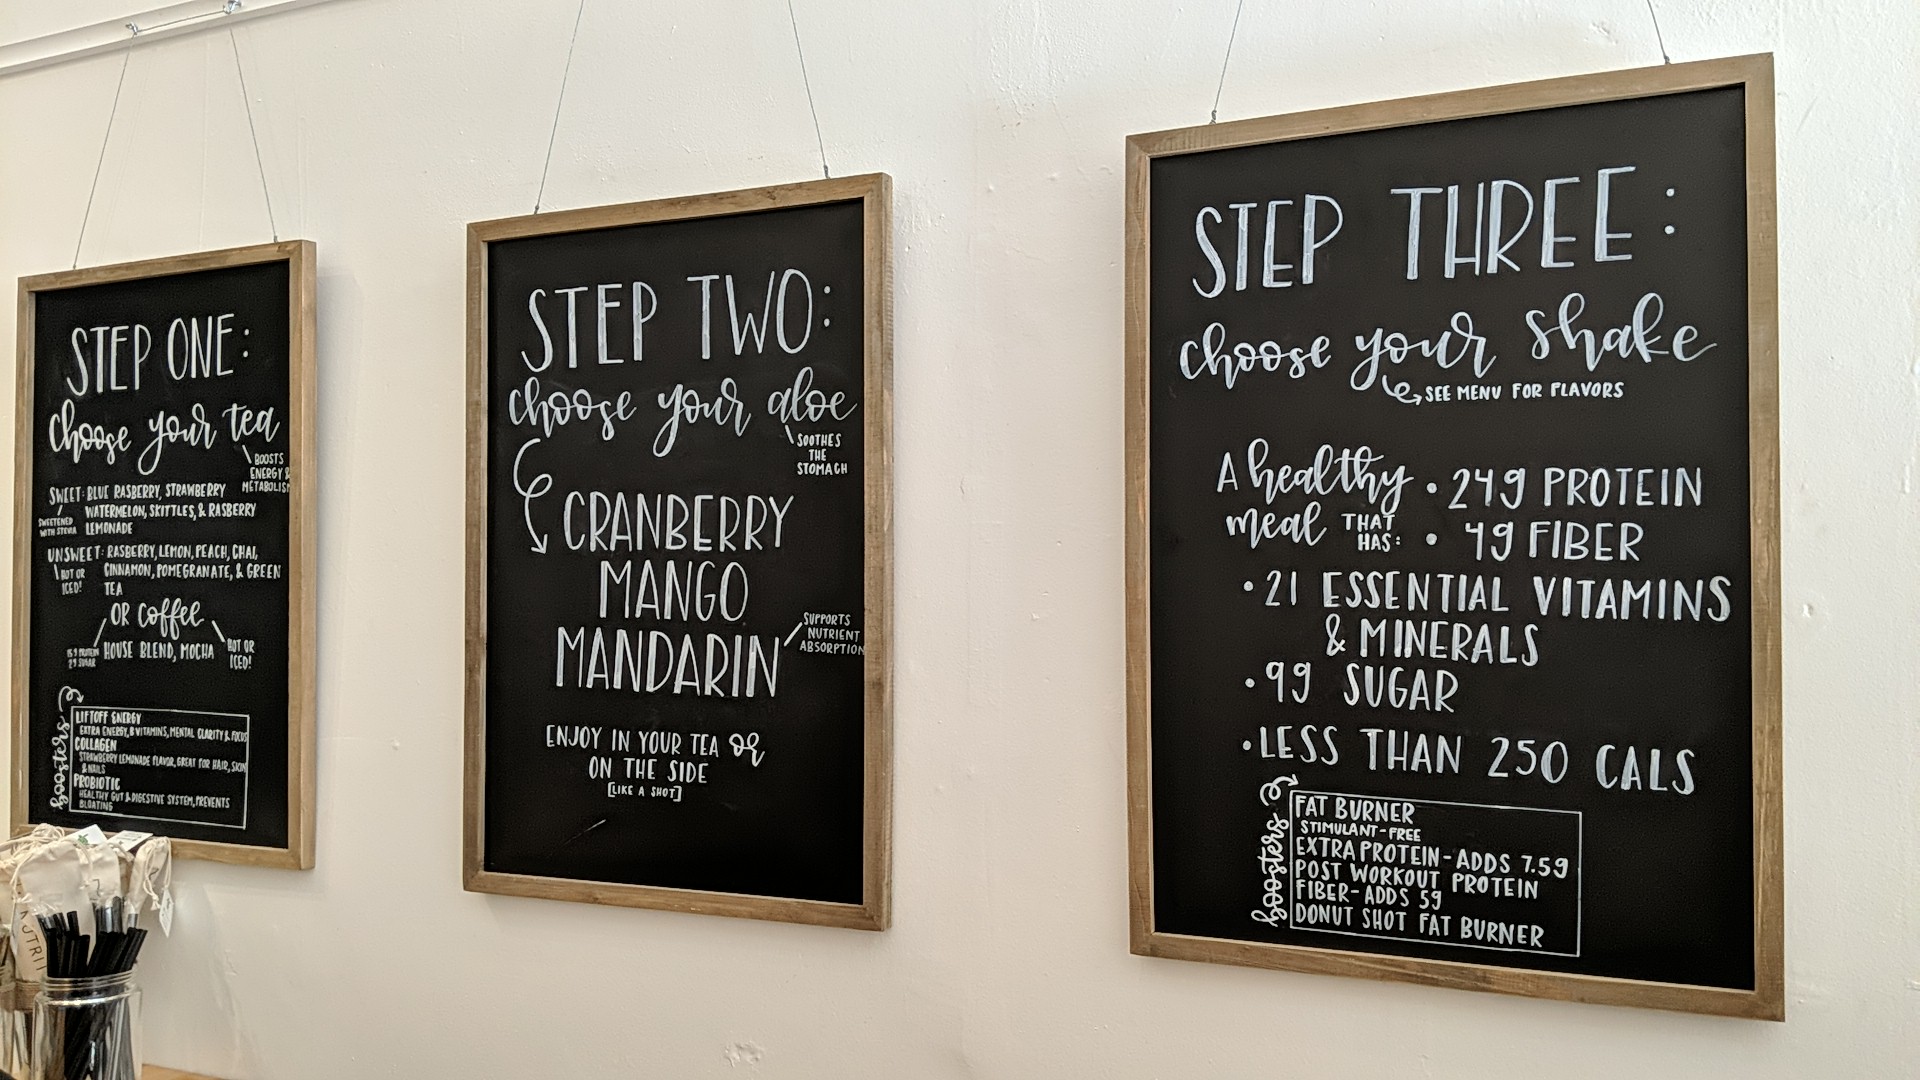 STEP ONE:
choose your tea
BOOSTS
ENERGY &
METABOLISM
SWEET: BLUE RASBERRY, STRAWBERRY
WATERMELON, SKITTLES, & RASBERRY
LEMONADE
SWEETENED
WITH STEVIA
UNSWEET: RASBERRY, LEMON, PEACH, CHAI,
CINNAMON, POMEGRANATE, & GREEN
TEA
HOT OR
ICED!
OR coffee
HOUSE BLEND, MOCHA
15g PROTEIN
2g SUGAR
HOT OR
ICED!
boosters
LIFTOFF ENERGY
EXTRA ENERGY, B VITAMINS, MENTAL CLARITY & FOCUS
COLLAGEN
STRAWBERRY LEMONADE FLAVOR, GREAT FOR HAIR, SKIN
& NAILS
PROBIOTIC
HEALTHY GUT & DIGESTIVE SYSTEM, PREVENTS
BLOATING
STEP TWO:
choose your aloe
SOOTHES
THE
STOMACH
CRANBERRY
MANGO
MANDARIN
SUPPORTS
NUTRIENT
ABSORPTION
ENJOY IN YOUR TEA or
ON THE SIDE
[LIKE A SHOT]
STEP THREE:
choose your shake
SEE MENU FOR FLAVORS
A healthy
meal THAT
HAS:
• 24g PROTEIN
• 4g FIBER
• 21 ESSENTIAL VITAMINS
& MINERALS
• 9g SUGAR
• LESS THAN 250 CALS
boosters
FAT BURNER
STIMULANT-FREE
EXTRA PROTEIN - ADDS 7.5g
POST WORKOUT PROTEIN
FIBER - ADDS 5g
DONUT SHOT FAT BURNER